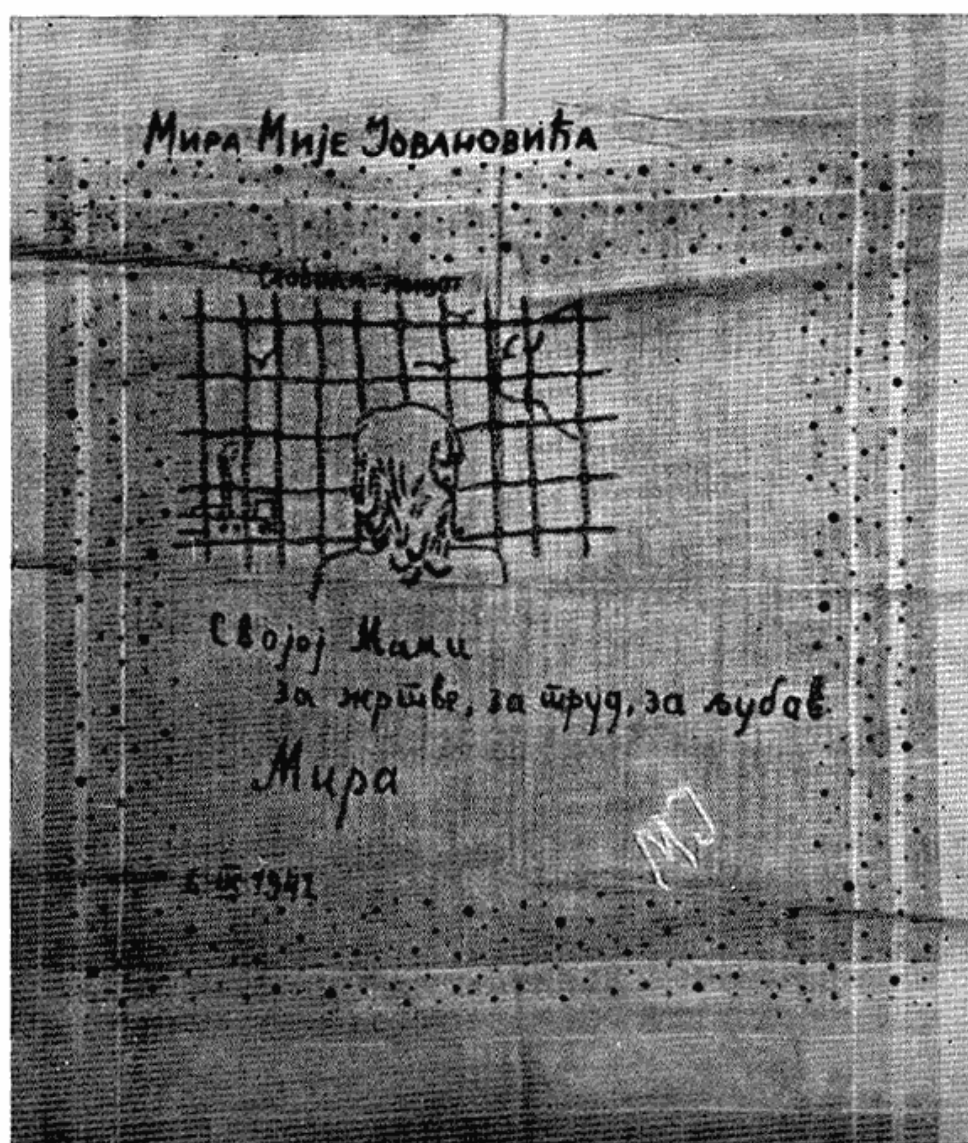 Мира Мије Јовановића
Слобода-живот
Својој Мами
за жртве, за труд, за љубав.
Мира
MJ
IX 1942